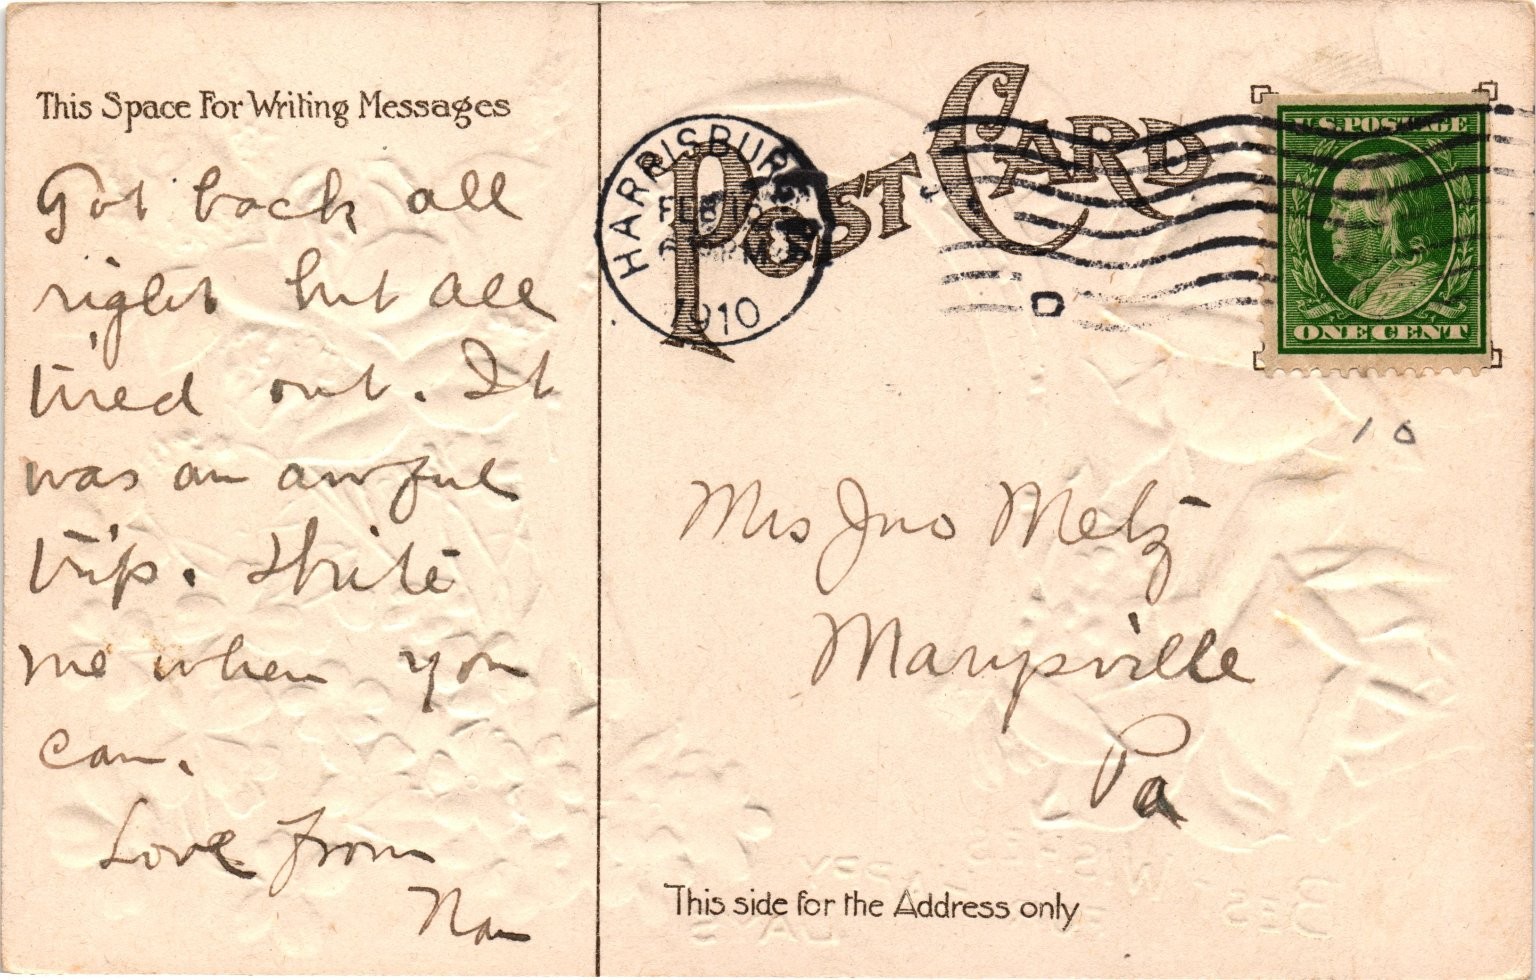 This Space For Writing Messages
Got back all
right but all
tired out. It
was an awful
trip. Write
me when you
can.
Love from
Nan
POST CARD
HARRISBURG
FEB 16
1910
D
U.S. POSTAGE
ONE CENT
10
Mrs Jno Metz
Marysville
Pa
This side for the Address only